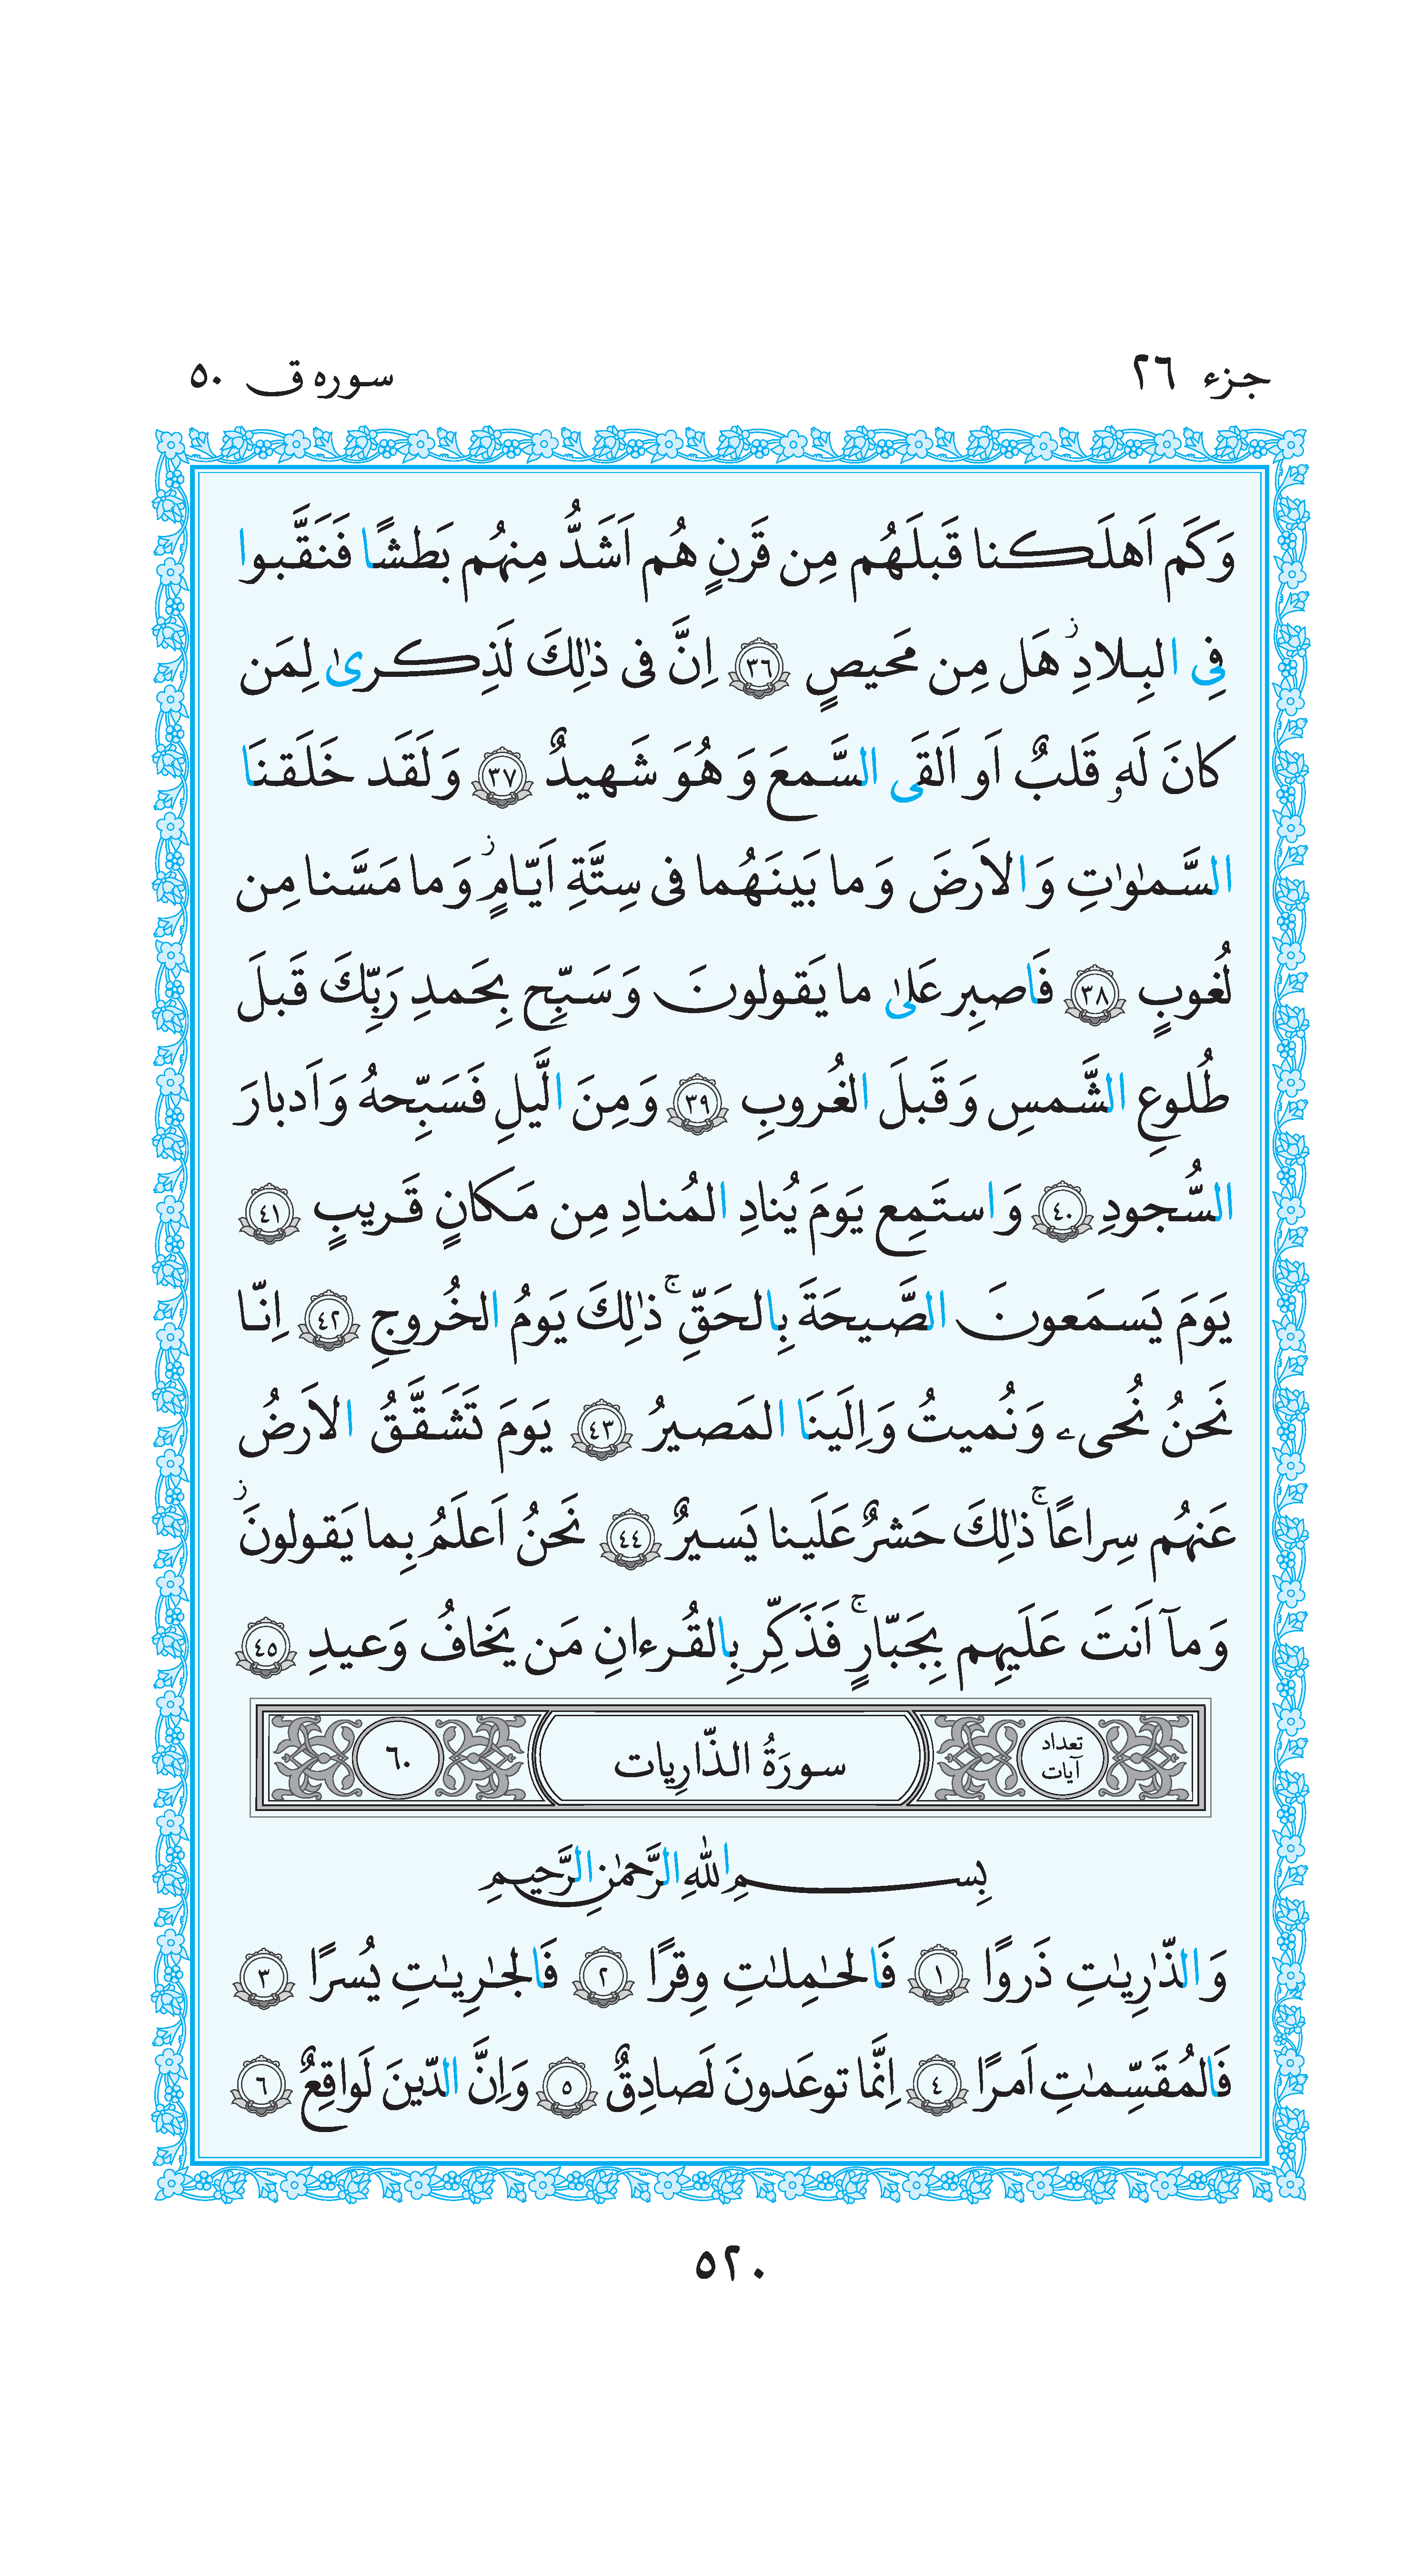 جزء ٢٦
سوره ق ٥٠
وَكَم اَهلَكنا قَبلَهُم مِن قَرنٍ هُم اَشَدُّ مِنهُم بَطشًا فَنَقَّبوا
فِی البِلادِ ز هَل مِن مَحيصٍ ﴿٣٦﴾ اِنَّ فی ذٰلِكَ لَذِكرىٰ لِمَن
كانَ لَهٗ قَلبٌ اَو اَلقَی السَّمعَ وَ هُوَ شَهيدٌ ﴿٣٧﴾ وَ لَقَد خَلَقنَا
السَّمٰوٰتِ وَ الاَرضَ وَ ما بَينَهُما فی سِتَّةِ اَيّامٍ ز وَ ما مَسَّنا مِن
لُغوبٍ ﴿٣٨﴾ فَاصبِر عَلیٰ ما يَقولونَ وَ سَبِّح بِحَمدِ رَبِّكَ قَبلَ
طُلوعِ الشَّمسِ وَ قَبلَ الغُروبِ ﴿٣٩﴾ وَ مِنَ الَّيلِ فَسَبِّحهُ وَ اَدبارَ
السُّجودِ ﴿٤٠﴾ وَ استَمِع يَومَ يُنادِ المُنادِ مِن مَكانٍ قَريبٍ ﴿٤١﴾
يَومَ يَسمَعونَ الصَّيحَةَ بِالحَقِّ ۚ ذٰلِكَ يَومُ الخُروجِ ﴿٤٢﴾ اِنّا
نَحنُ نُحیۦ وَ نُميتُ وَ اِلَينَا المَصيرُ ﴿٤٣﴾ يَومَ تَشَقَّقُ الاَرضُ
عَنهُم سِراعًا ۚ ذٰلِكَ حَشرٌ عَلَينا يَسيرٌ ﴿٤٤﴾ نَحنُ اَعلَمُ بِما يَقولونَ ز
وَ مآ اَنتَ عَلَيهِم بِجَبّارٍ ۚ فَذَكِّر بِالقُرءانِ مَن يَخافُ وَعيدِ ﴿٤٥﴾
تعداد آيات سورَةُ الذّارِيات ٦٠
بِسمِ اللّٰهِ الرَّحمٰنِ الرَّحيمِ
وَ الذّٰرِيٰتِ ذَروًا ﴿١﴾ فَالحٰمِلٰتِ وِقرًا ﴿٢﴾ فَالجٰرِيٰتِ يُسرًا ﴿٣﴾
فَالمُقَسِّمٰتِ اَمرًا ﴿٤﴾ اِنَّما توعَدونَ لَصادِقٌ ﴿٥﴾ وَ اِنَّ الدّينَ لَواقِعٌ ﴿٦﴾
٥٢٠